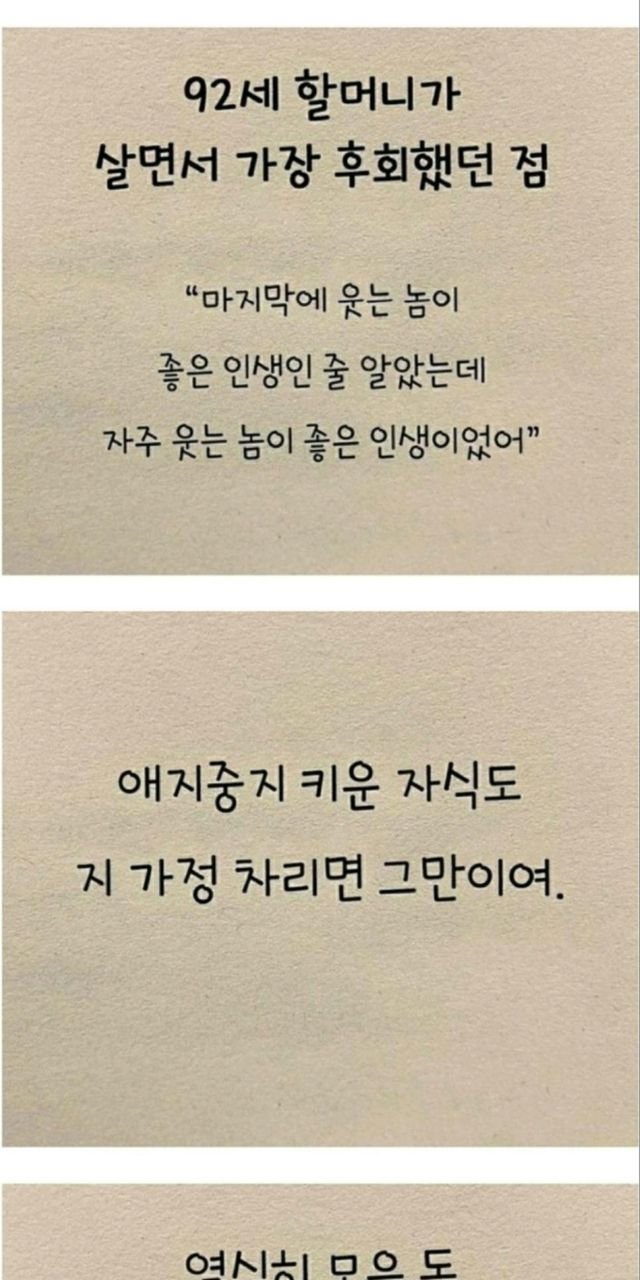 92세 할머니가
살면서 가장 후회했던 점
“마지막에 웃는 놈이
좋은 인생인 줄 알았는데
자주 웃는 놈이 좋은 인생이었어”
애지중지 키운 자식도
지 가정 차리면 그만이여.
열심히 모은 돈